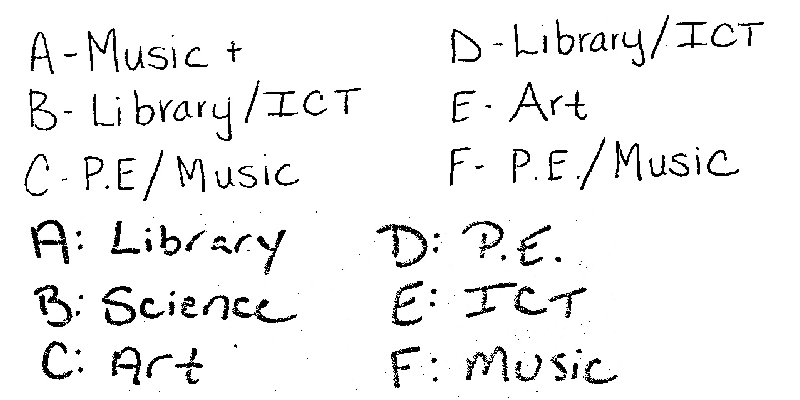 A-Music +
B-Library/ICT
C-P.E/Music
D-Library/ICT
E-Art
F-P.E./Music
A: Library
B: Science
C: Art
D: P.E.
E: ICT
F: Music